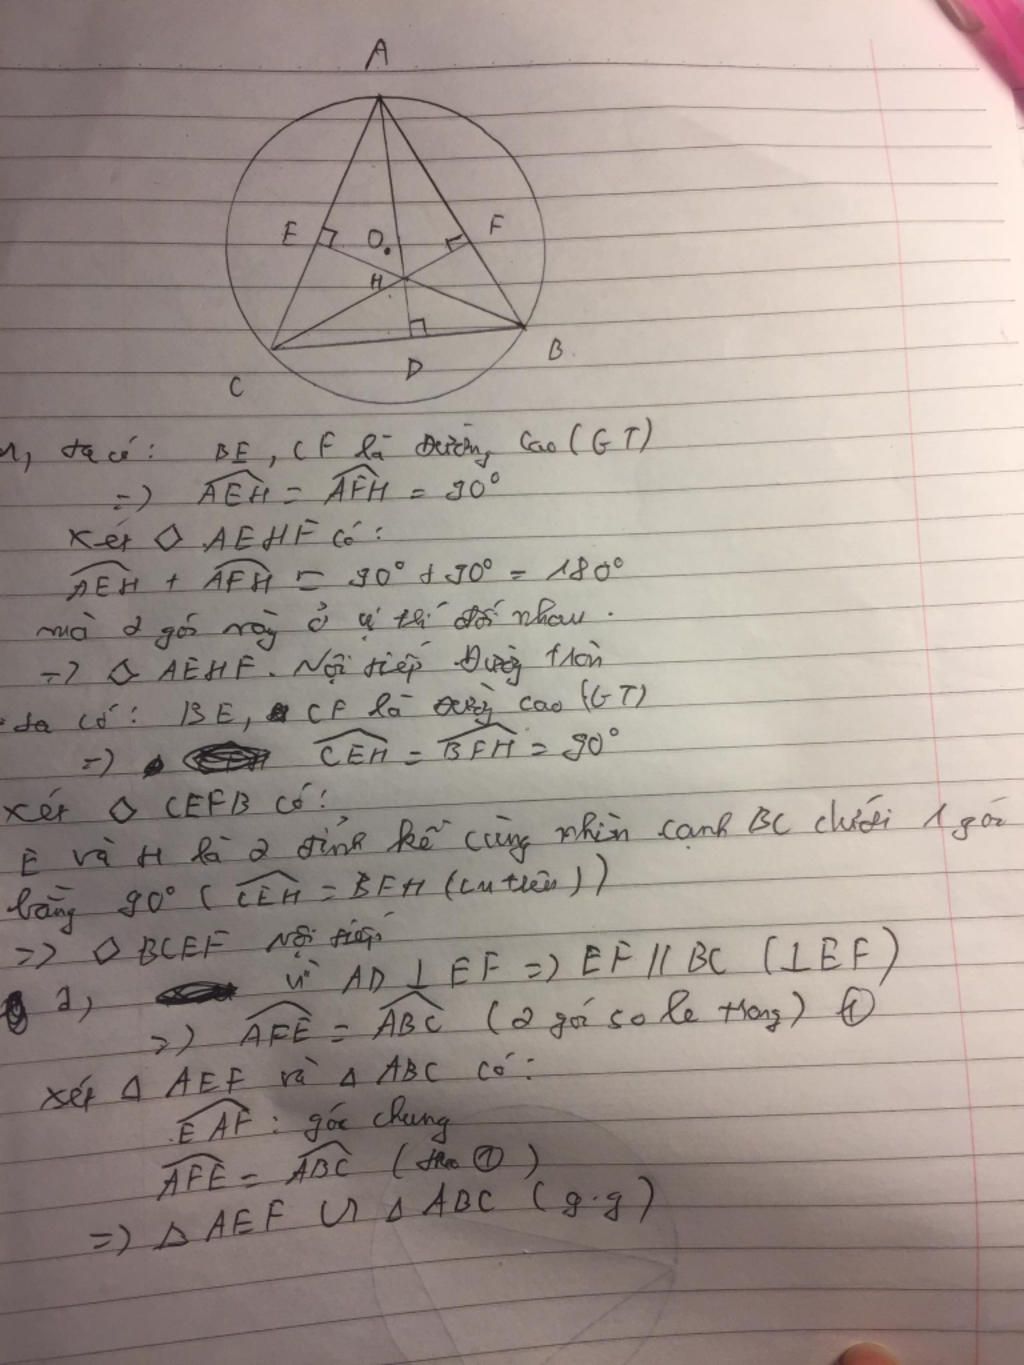 A
E
O
F
H
B
D
C
1, ta có: BE, CF là đường cao (GT)
=> AEH = AFH = 90°
xét ◇ AEHF có:
AEH + AFH = 90° + 90° = 180°
mà 2 góc này ở vị thí đối nhau.
=> ◇ AEHF. Nội tiếp đường tròn
ta có: BE, CF là đường cao (GT)
=> CEH = BFH = 90°
xét ◇ CEFB có:
E và H là 2 đỉnh kề cùng nhìn cạnh BC dưới 1 góc
bằng 90° (CEH = BFH (cm trên))
=> ◇ BCEF nội tiếp
2, vì AD ⊥ EF => EF // BC (⊥EF)
=> AFE = ABC (2 góc so le trong) ①
xét △ AEF và △ ABC có:
EAF: góc chung
AFE = ABC (theo ①)
=> △ AEF ∽ △ ABC (g.g)